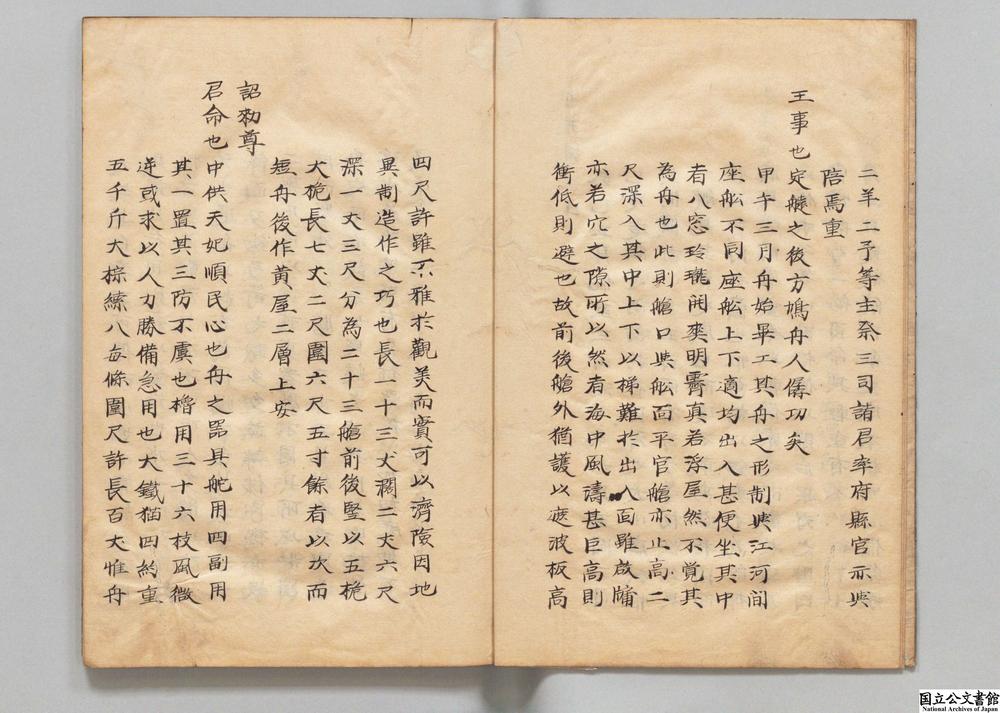 二羊二予等主祭三司諸君率府縣官亦與
陪焉重
王事也定䑨之後方鳩舟人僝功矣
甲午三月舟始畢工其舟之形制與江河間
座舩不同座舩上下適均出入甚便坐其中
者八窓玲瓏開爽明霽真若浮屋然不覺其
為舟也此則艙口與舩面平官艙亦止高二
尺深入其中上下以梯難於出入面雖啟牖
亦若穴之隙所以然者海中風濤甚巨高則
衝低則避也故前後艙外猶護以遮波板高
四尺許雖不雅於觀美而實可以濟險因地
異制造作之巧也長一十三丈濶二丈六尺
深一丈三尺分為二十三艙前後竪以五桅
大桅長七丈二尺圍六尺五寸餘者以次而
短舟後作黄屋二層上安
詔勅尊
君命也中供天妃順民心也舟之器具舵用四副用
其一置其三防不虞也櫓用三十六枝風微
逆或求以人力勝備急用也大鐵猫四約重
五千斤大棕縤八每條圍尺許長百丈惟舟
国立公文書館
National Archives of Japan